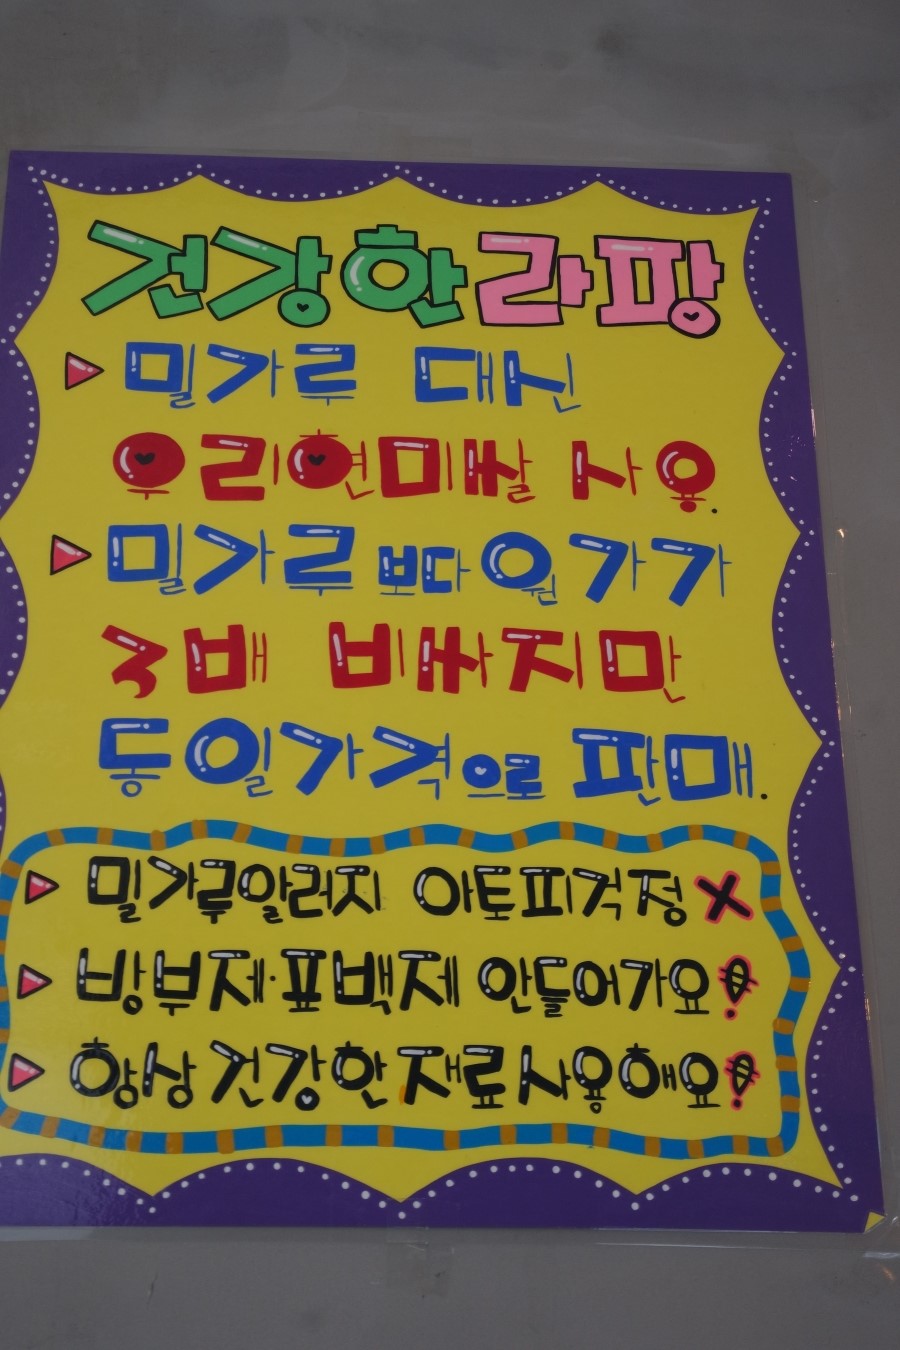 건강한라팡
밀가루 대신
우리현미쌀 사용.
밀가루보다 원가가
3배 비싸지만
동일가격으로 판매.
밀가루알러지 아토피걱정 X
방부제·표백제 안들어가요!
항상 건강한 재료사용해요!